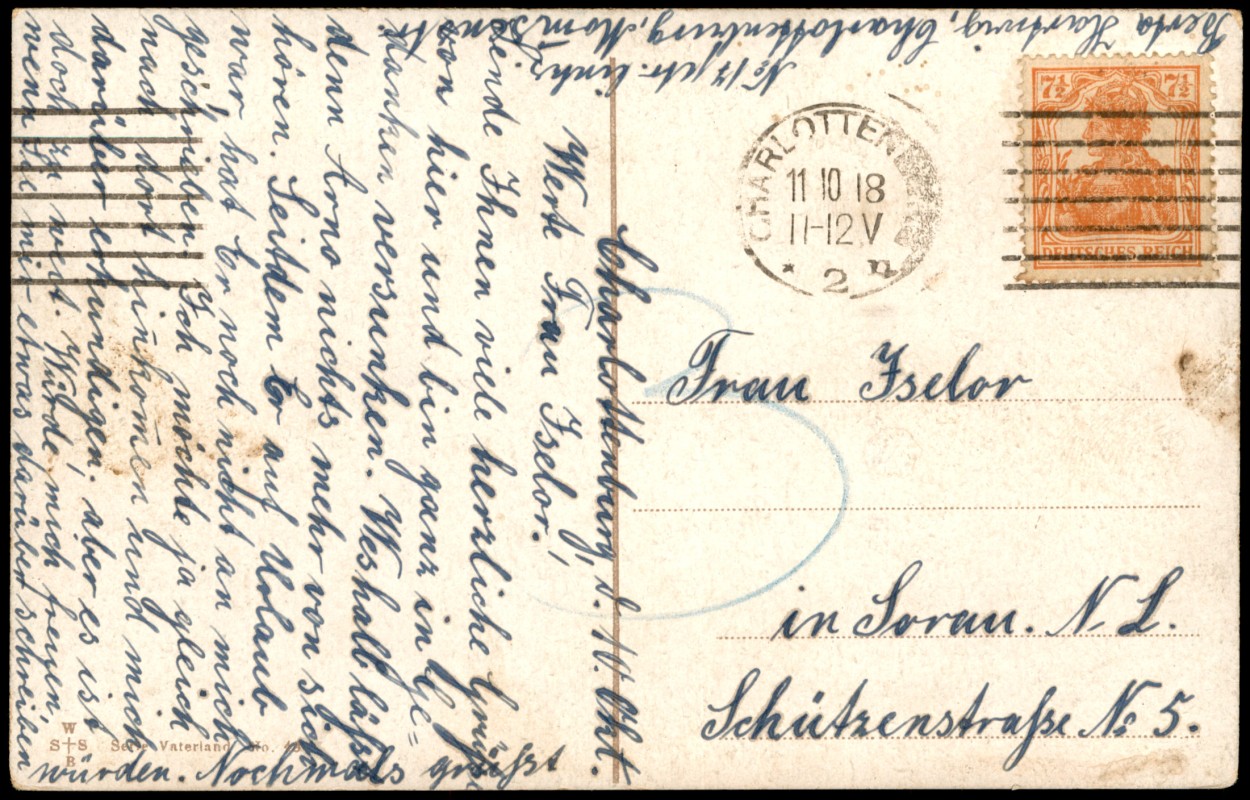 Charlottenburg, d. 10. Okt.
Werte Frau Iselor!
Sende Ihnen viele herzliche Grüße
von hier und bin ganz in Ge=
danken versunken. Weshalb läßt
denn Arno nichts mehr von sich
hören. Seitdem Er auf Urlaub
war hat Er noch nicht an mich
geschrieben. Ich möchte ja gleich
nach dort hinkom̅en und mich
darüber erkundigen. aber es ist
doch zu weit. Würde, mich freuen,
wenn Sie mir etwas darüber schreiben
würden. Nochmals grüßt
Berta Hartwig, Charlottenburg, Momsenstr
No 17 links
CHARLOTTENBURG
11 10 18
11-12 V
* 2 n
7½ 7½
DEUTSCHES REICH
3
Frau Iselor
in Sorau. N. L.
Schützenstraße No 5.
W
S S
B
Serie Vaterland No.